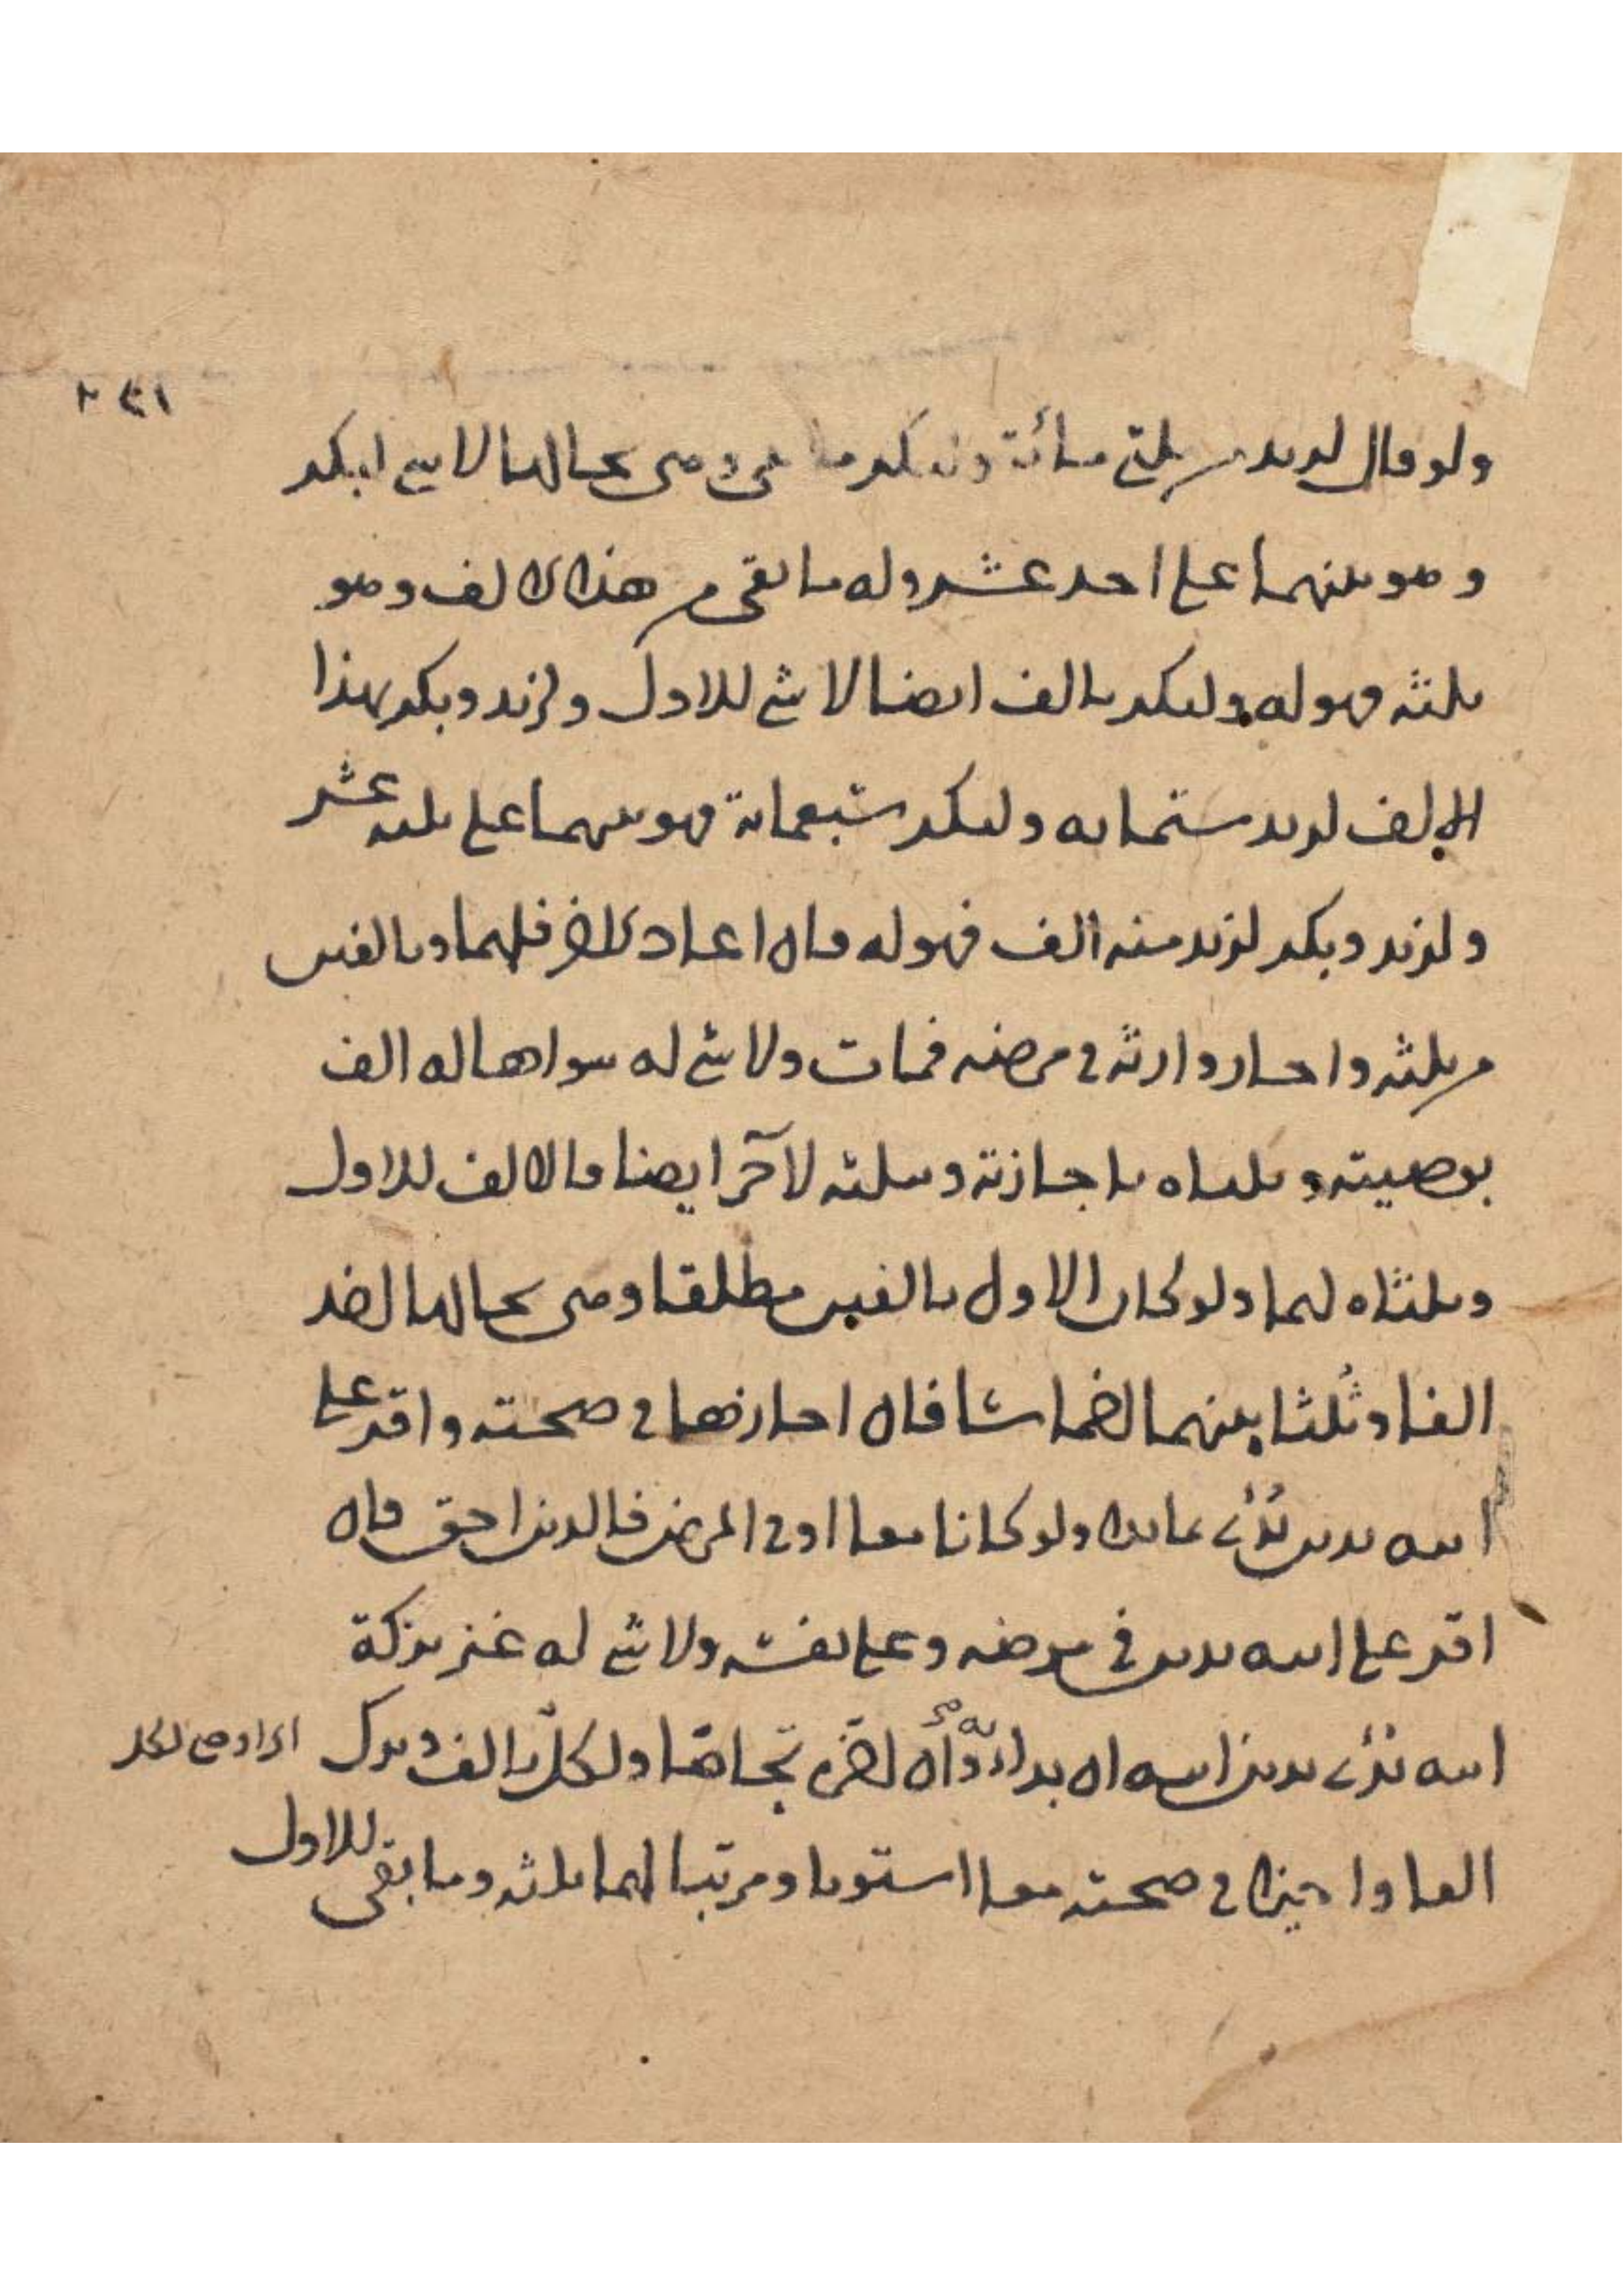 ٢٤١
ولو قال لزيد من ثلثي مائة ولبكر ما بقي وهي بحالها لا شي لبكر
وهو بينهما على احد عشر وله ما بقي من هذا الالف وهو
ثلثه فهو له ولبكر بالف ايضا لا شي للاول ولزيد وبكر بهذا
الالف لزيد ستمايه ولبكر سبعماية فهو بينهما على ثلثه عشر
ولزيد وبكر لزيد منه الف فهو له فان اعاد فلهما وبالفين
من ثلثه واجاز وارثه في مرضه فمات ولا شي له سواها له الف
بوصيته وثلثاه باجازته وبثلثه لآخر ايضا فالالف للاول
وثلثاه لهما ولو كان الاول بالفين مطلقا وهي بحالها
الفا وثلثا بينهما اخماسا فان اجازها في صحته واقر على
ابيه بدين بدئ ولو كانا معا او في المرض فالدين احق فان
اقر على ابيه بدين في مرضه وعلى نفسه ولا شي له غير تركة
ابيه بدئ بدين ابيه ان بدا به وان اخره تحاصا ولكل بالف وترك
الفا واجيزا في صحته معا استويا ومرتبا لهما ثلثه وما بقي للاول